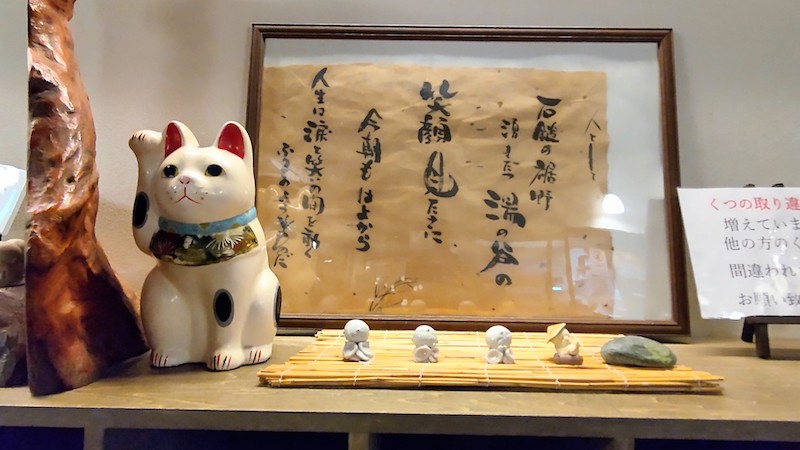 人として
石鎚の裾野
沸きたつ
湯の谷の
笑顔見たさに
今朝もはよから
人生は涙と笑いの間を動く
ふりこのようなものだ
くつの取り違
増えていま
他の方のく
間違われ
お願いいた